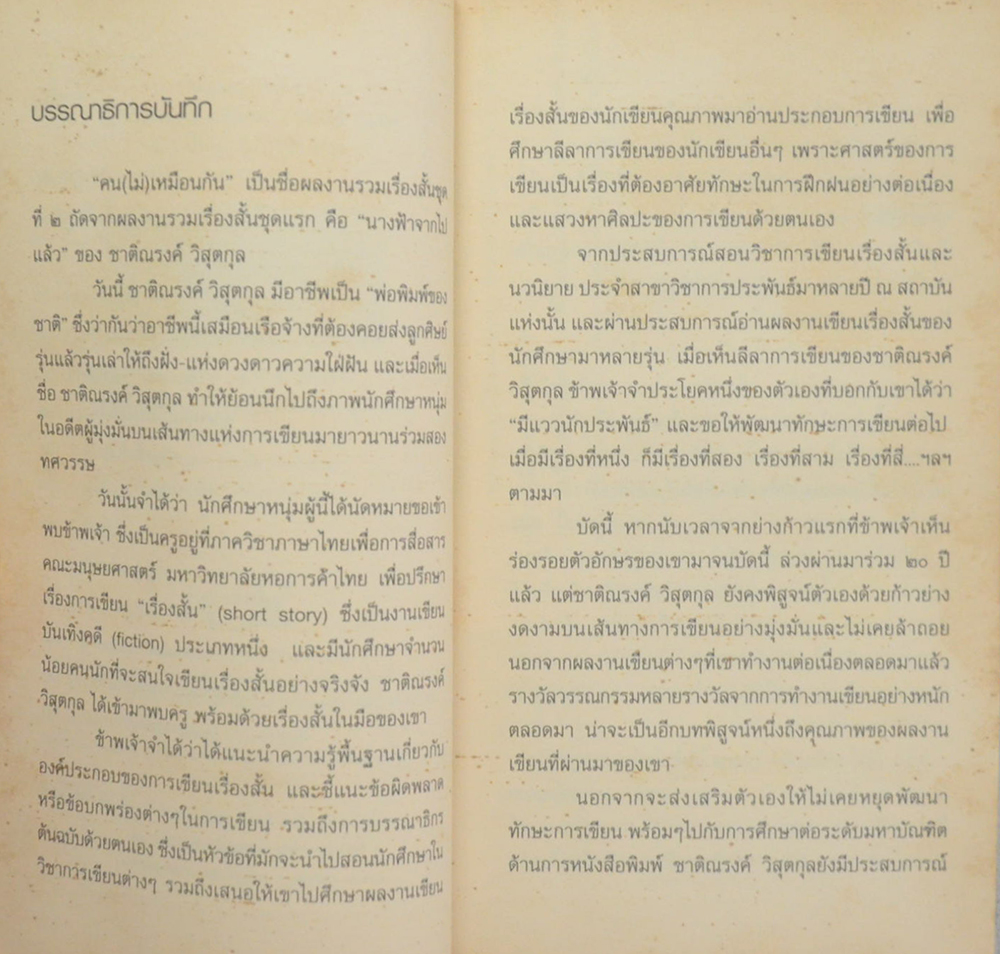 บรรณาธิการบันทึก
"คน(ไม่)เหมือนกัน" เป็นชื่อผลงานรวมเรื่องสั้นชุด
ที่ ๒ ถัดจากผลงานรวมเรื่องสั้นชุดแรก คือ "นางฟ้าจากไป
แล้ว" ของ ชาติณรงค์ วิสุตกุล
วันนี้ ชาติณรงค์ วิสุตกุล มีอาชีพเป็น "พ่อพิมพ์ของ
ชาติ" ซึ่งว่ากันว่าอาชีพนี้เสมือนเรือจ้างที่ต้องคอยส่งลูกศิษย์
รุ่นแล้วรุ่นเล่าให้ถึงฝั่ง-แห่งดวงดาวความใฝ่ฝัน และเมื่อเห็น
ชื่อ ชาติณรงค์ วิสุตกุล ทำให้ย้อนนึกไปถึงภาพนักศึกษาหนุ่ม
ในอดีตผู้มุ่งมั่นบนเส้นทางแห่งการเขียนมายาวนานร่วมสอง
ทศวรรษ
วันนั้นจำได้ว่า นักศึกษาหนุ่มผู้นี้ได้นัดหมายขอเข้า
พบข้าพเจ้า ซึ่งเป็นครูอยู่ที่ภาควิชาภาษาไทยเพื่อการสื่อสาร
คณะมนุษยศาสตร์ มหาวิทยาลัยหอการค้าไทย เพื่อปรึกษา
เรื่องการเขียน "เรื่องสั้น" (short story) ซึ่งเป็นงานเขียน
บันเทิงคดี (fiction) ประเภทหนึ่ง และมีนักศึกษาจำนวน
น้อยคนนักที่จะสนใจเขียนเรื่องสั้นอย่างจริงจัง ชาติณรงค์
วิสุตกุล ได้เข้ามาพบครู พร้อมด้วยเรื่องสั้นในมือของเขา
ข้าพเจ้าจำได้ว่าได้แนะนำความรู้พื้นฐานเกี่ยวกับ
องค์ประกอบของการเขียนเรื่องสั้น และชี้แนะข้อผิดพลาด
หรือข้อบกพร่องต่างๆในการเขียน รวมถึงการบรรณาธิกร
ต้นฉบับด้วยตนเอง ซึ่งเป็นหัวข้อที่มักจะนำไปสอนนักศึกษาใน
วิชาการเขียนต่างๆ รวมถึงเสนอให้เขาไปศึกษาผลงานเขียน
เรื่องสั้นของนักเขียนคุณภาพมาอ่านประกอบการเขียน เพื่อ
ศึกษาลีลาการเขียนของนักเขียนอื่นๆ เพราะศาสตร์ของการ
เขียนเป็นเรื่องที่ต้องอาศัยทักษะในการฝึกฝนอย่างต่อเนื่อง
และแสวงหาศิลปะของการเขียนด้วยตนเอง
จากประสบการณ์สอนวิชาการเขียนเรื่องสั้นและ
นวนิยาย ประจำสาขาวิชาการประพันธ์มาหลายปี ณ สถาบัน
แห่งนั้น และผ่านประสบการณ์อ่านผลงานเขียนเรื่องสั้นของ
นักศึกษามาหลายรุ่น เมื่อเห็นลีลาการเขียนของชาติณรงค์
วิสุตกุล ข้าพเจ้าจำประโยคหนึ่งของตัวเองที่บอกกับเขาได้ว่า
"มีแววนักประพันธ์" และขอให้พัฒนาทักษะการเขียนต่อไป
เมื่อมีเรื่องที่หนึ่ง ก็มีเรื่องที่สอง เรื่องที่สาม เรื่องที่สี่....ฯลฯ
ตามมา
บัดนี้ หากนับเวลาจากย่างก้าวแรกที่ข้าพเจ้าเห็น
ร่องรอยตัวอักษรของเขามาจนบัดนี้ ล่วงผ่านมาร่วม ๒๐ ปี
แล้ว แต่ชาติณรงค์ วิสุตกุล ยังคงพิสูจน์ตัวเองด้วยก้าวย่าง
งดงามบนเส้นทางการเขียนอย่างมุ่งมั่นและไม่เคยล้าถอย
นอกจากผลงานเขียนต่างๆที่เขาทำงานต่อเนื่องตลอดมาแล้ว
รางวัลวรรณกรรมหลายรางวัลจากการทำงานเขียนอย่างหนัก
ตลอดมา น่าจะเป็นอีกบทพิสูจน์หนึ่งถึงคุณภาพของผลงาน
เขียนที่ผ่านมาของเขา
นอกจากจะส่งเสริมตัวเองให้ไม่เคยหยุดพัฒนา
ทักษะการเขียน พร้อมๆไปกับการศึกษาต่อระดับมหาบัณฑิต
ด้านการหนังสือพิมพ์ ชาติณรงค์ วิสุตกุลยังมีประสบการณ์